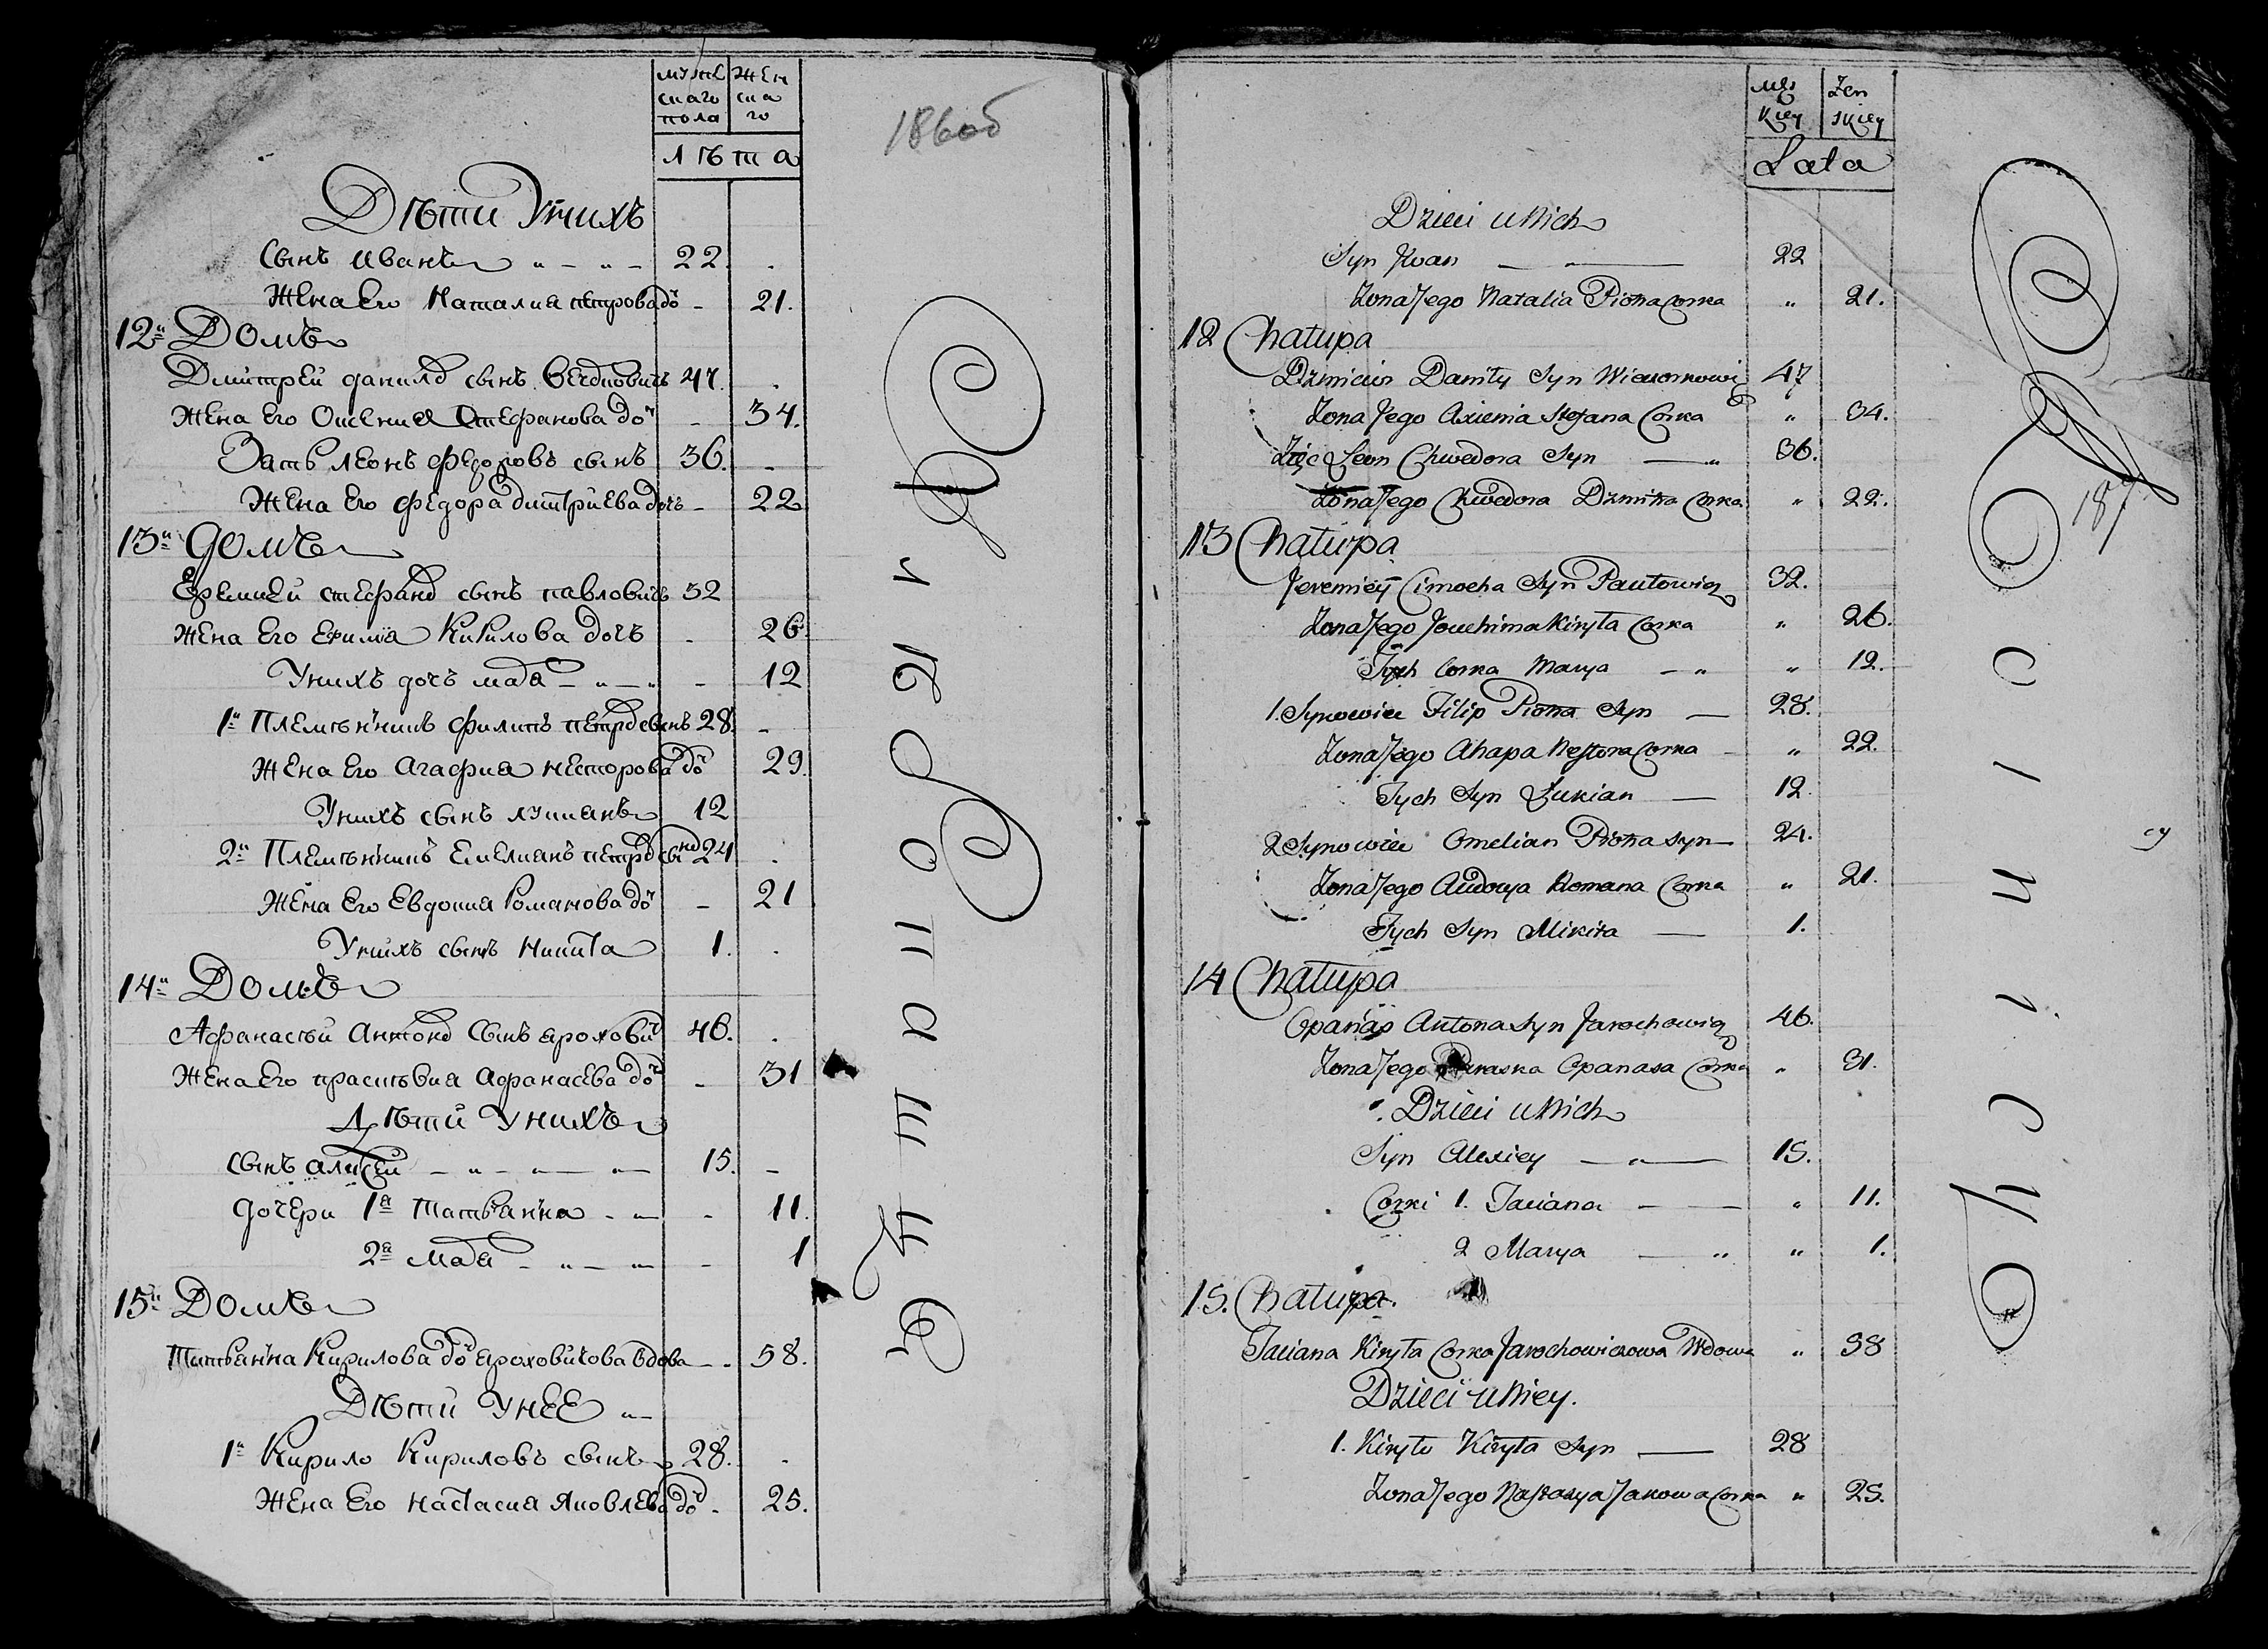 мужескаго пола
женскаго
лѣта
186об
Дѣти Унихъ
Сынъ Иванъ 22.
Жена Его Наталиа петрова доч 21.
12й Домъ
Дмитрей данило сынъ 47.
Жена Его Оксениа Стефанова доч 34.
Зять леонъ федоровъ сынъ 36.
Жена Его федора дмитриева дочъ 22
13й домъ
Еремией стефано сынъ павловичъ 32
Жена Его Ефимиа Кирилова дочъ 26.
Унихъ дочъ 12
1й Племѣнникъ филипъ петро сынъ 28.
Жена Его Агафиа несторова доч 29.
Унихъ сынъ лукианъ 12
2й Племѣнникъ Емелианъ петро сынъ 24
Жена Его Евдокиа Романова доч 21
Унихъ сынъ Никита 1.
14й Домъ
Афанасъй Антоно Сынъ ярохович 46.
Жена Его прасковиа Афанасева доч 31
Дѣти Унихъ
сынъ алексей 15.
дочери 1я Татьянна 11.
2я 1
15й Домъ
Татьянна Кирилова доч яроховичова вдова 58.
Дѣти Унее
1й Кирило Кириловъ сынъ 28.
Жена Его настасиа Яковлева доч 25.
męskiey
żenskiey
Lata
Dzieci u Nich
Syn Jwan 22
Żona Jego Natalia Piotra Corka 21.
12 Chałupa
Daniły Syn 47
Żona Jego Axienia Stefana Corka 34.
Zięc Leon Chwedora Syn 36.
Żona Jego Chwedora Dzmitra Corka 22.
13 Chałupa
Jeremieÿ Cimocha Syn Pawłowicz 32.
Żona Jego Jouchima Kiryła Corka 26.
Tych Corka Marya 12.
1. Synowiec Filip Piotra Syn 28.
Żona Jego Ahapa Nestora Corka 22.
Tych Syn Łukian 12.
2 Synowiec Omelian Piotra Syn 24.
Żona Jego Audocya Romana Corka 21.
Tych Syn Mikita 1.
14 Chałupa
Opanas Antona Syn Jarochowicz 46.
Żona Jego Paraska Opanasa Corka 31.
Dzieci u Nich
Syn Alexiey 15.
Corki 1. Taciana 11.
2 Marya 1.
15. Chałupa.
Taciana Kiryła Corka Jarochowiczowa Wdowa 38
Dzieci u Niey.
1. Kiryło Kiryła Syn 28
Żona Jego Nastazya Jakowa Corka 25.
187.